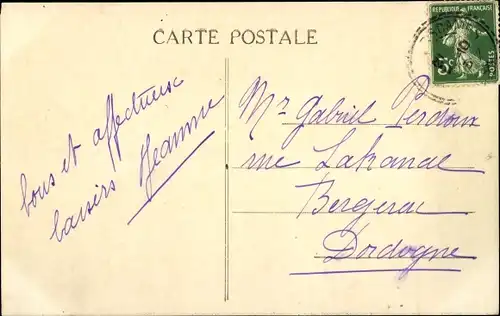 CARTE POSTALE
REPUBLIQUE FRANÇAISE
POSTES
5c
bons et affectueux
baisers Jeanne
Mr Gabriel Perdoux
rue Lakanal
Bergerac
Dordogne